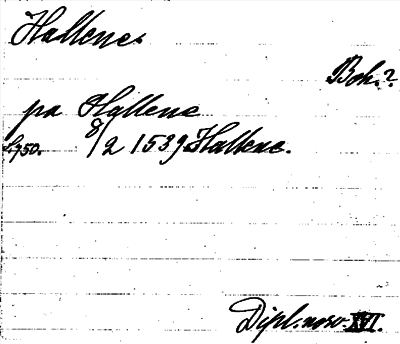 Hallene
Boh.?
pa Hallene
s.950. 8/2 1539 Hallene.
Dipl. norv. XVI.